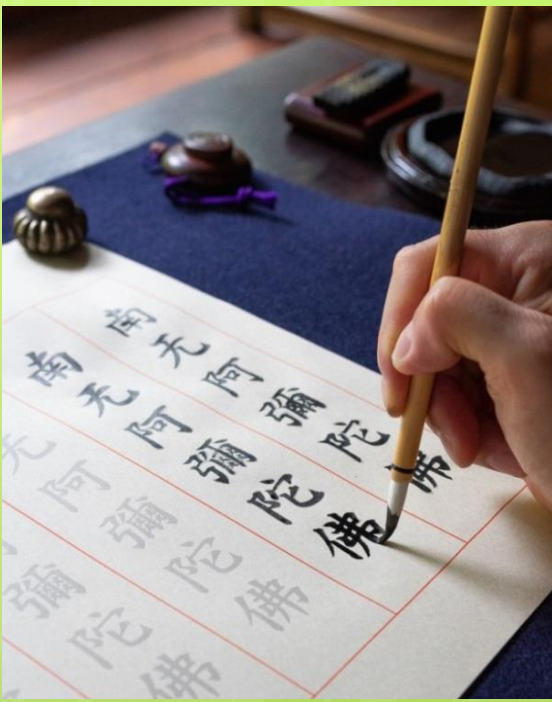 南无阿彌陀佛
南无阿彌陀佛
无阿彌陀佛
彌陀佛